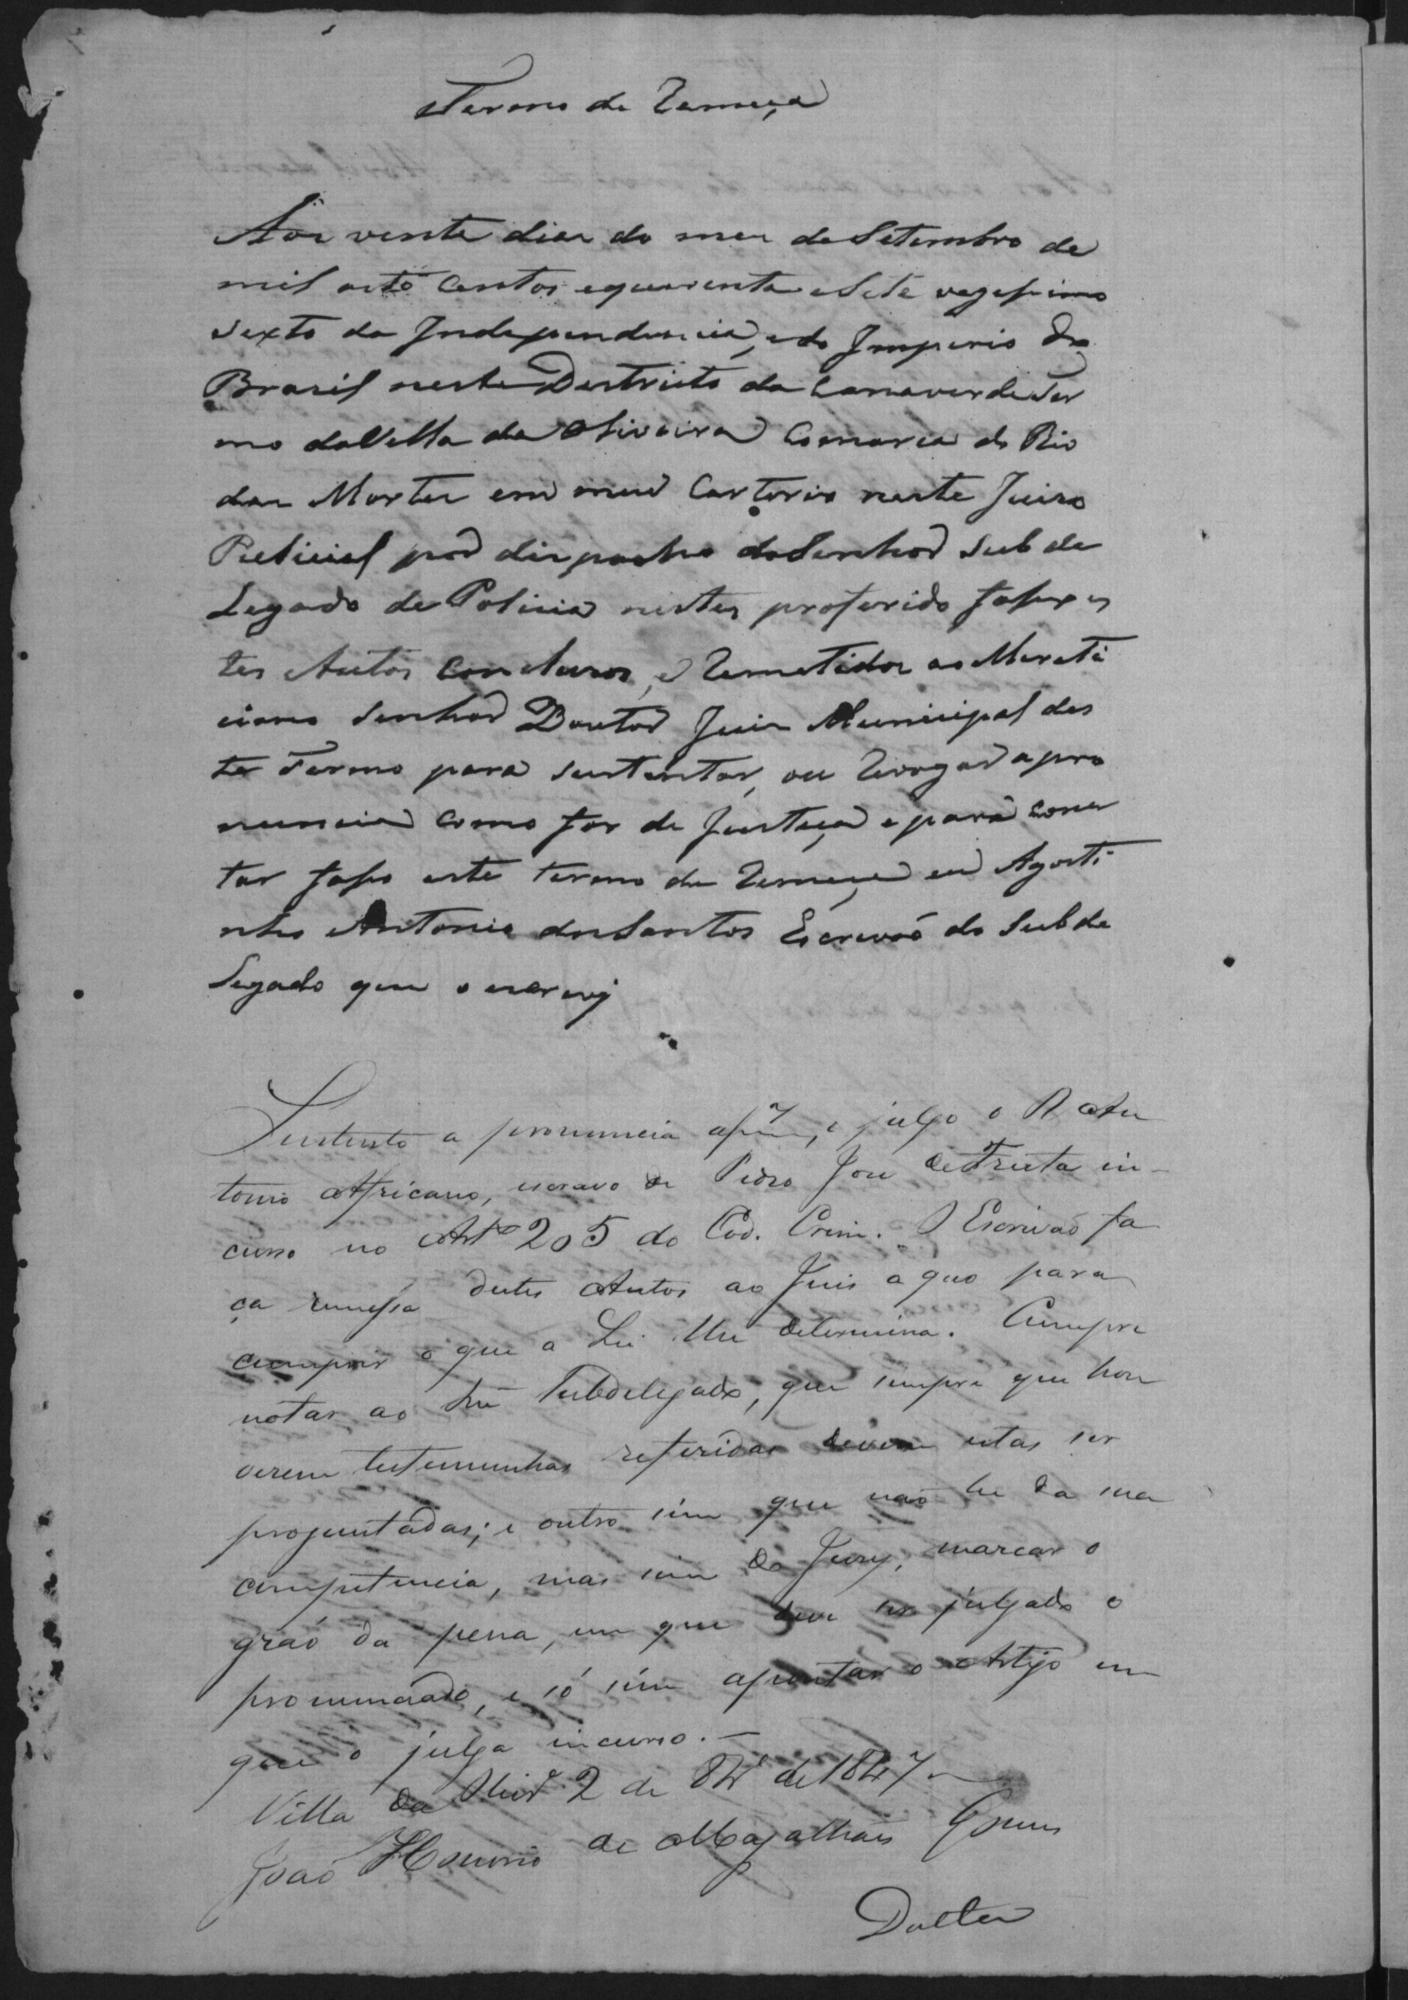 Termo de Remeça
Aos vente dias do mes de Setembro de
mil oito centos equarenta eSete vegessimo
Sexto da Independencia, e do Imperio do
Brasil neste Destricto da Cannaverde Ter
mo daVilla da Oliveira Comarca do Rio
das Mortes em meu Cartorio neste Juizo
Policial por dispacho doSenhor Sub de
legado de Policia nestes proferido faço es
tes Autos concluzos, e Remetidos ao Mereti
cimo Senhor Doutor Juis Municipal des
te Termo para sustentar, ou Revogar apro
nuncia como for de Justiça e para cons
tar faço este termo de Remeça eu Agosti
nho Antonio dosSantos Escrivaõ do Subde
legado que o escrevy
Sustento a pronuncia afs, e julgo o R An
tonio Africano, escravo de Pedro Jose de Freita in-
curso no Artº 205 do Cod. Crim. O Escrivaõ fa
ça remessa destes Autos ao Juis a quo para
cumprir o que a Lei lhe determina. Cumpre
notar ao Snr Subdelegado, que sempre que hou
verem testemunhas referidas devem estas ser
proguntadas; e outro sim que naõ he da sua
competencia, mas sim do Jury, marcar o
gráo da pena, em que deve ser julgado o
pronunciado, e só sim apontar o Artigo em
que o julga incurso.-
Villa da Olivrª 2 de 8bº de 1847
Joaõ Honorio de Magalhaes Gomes
Dacta